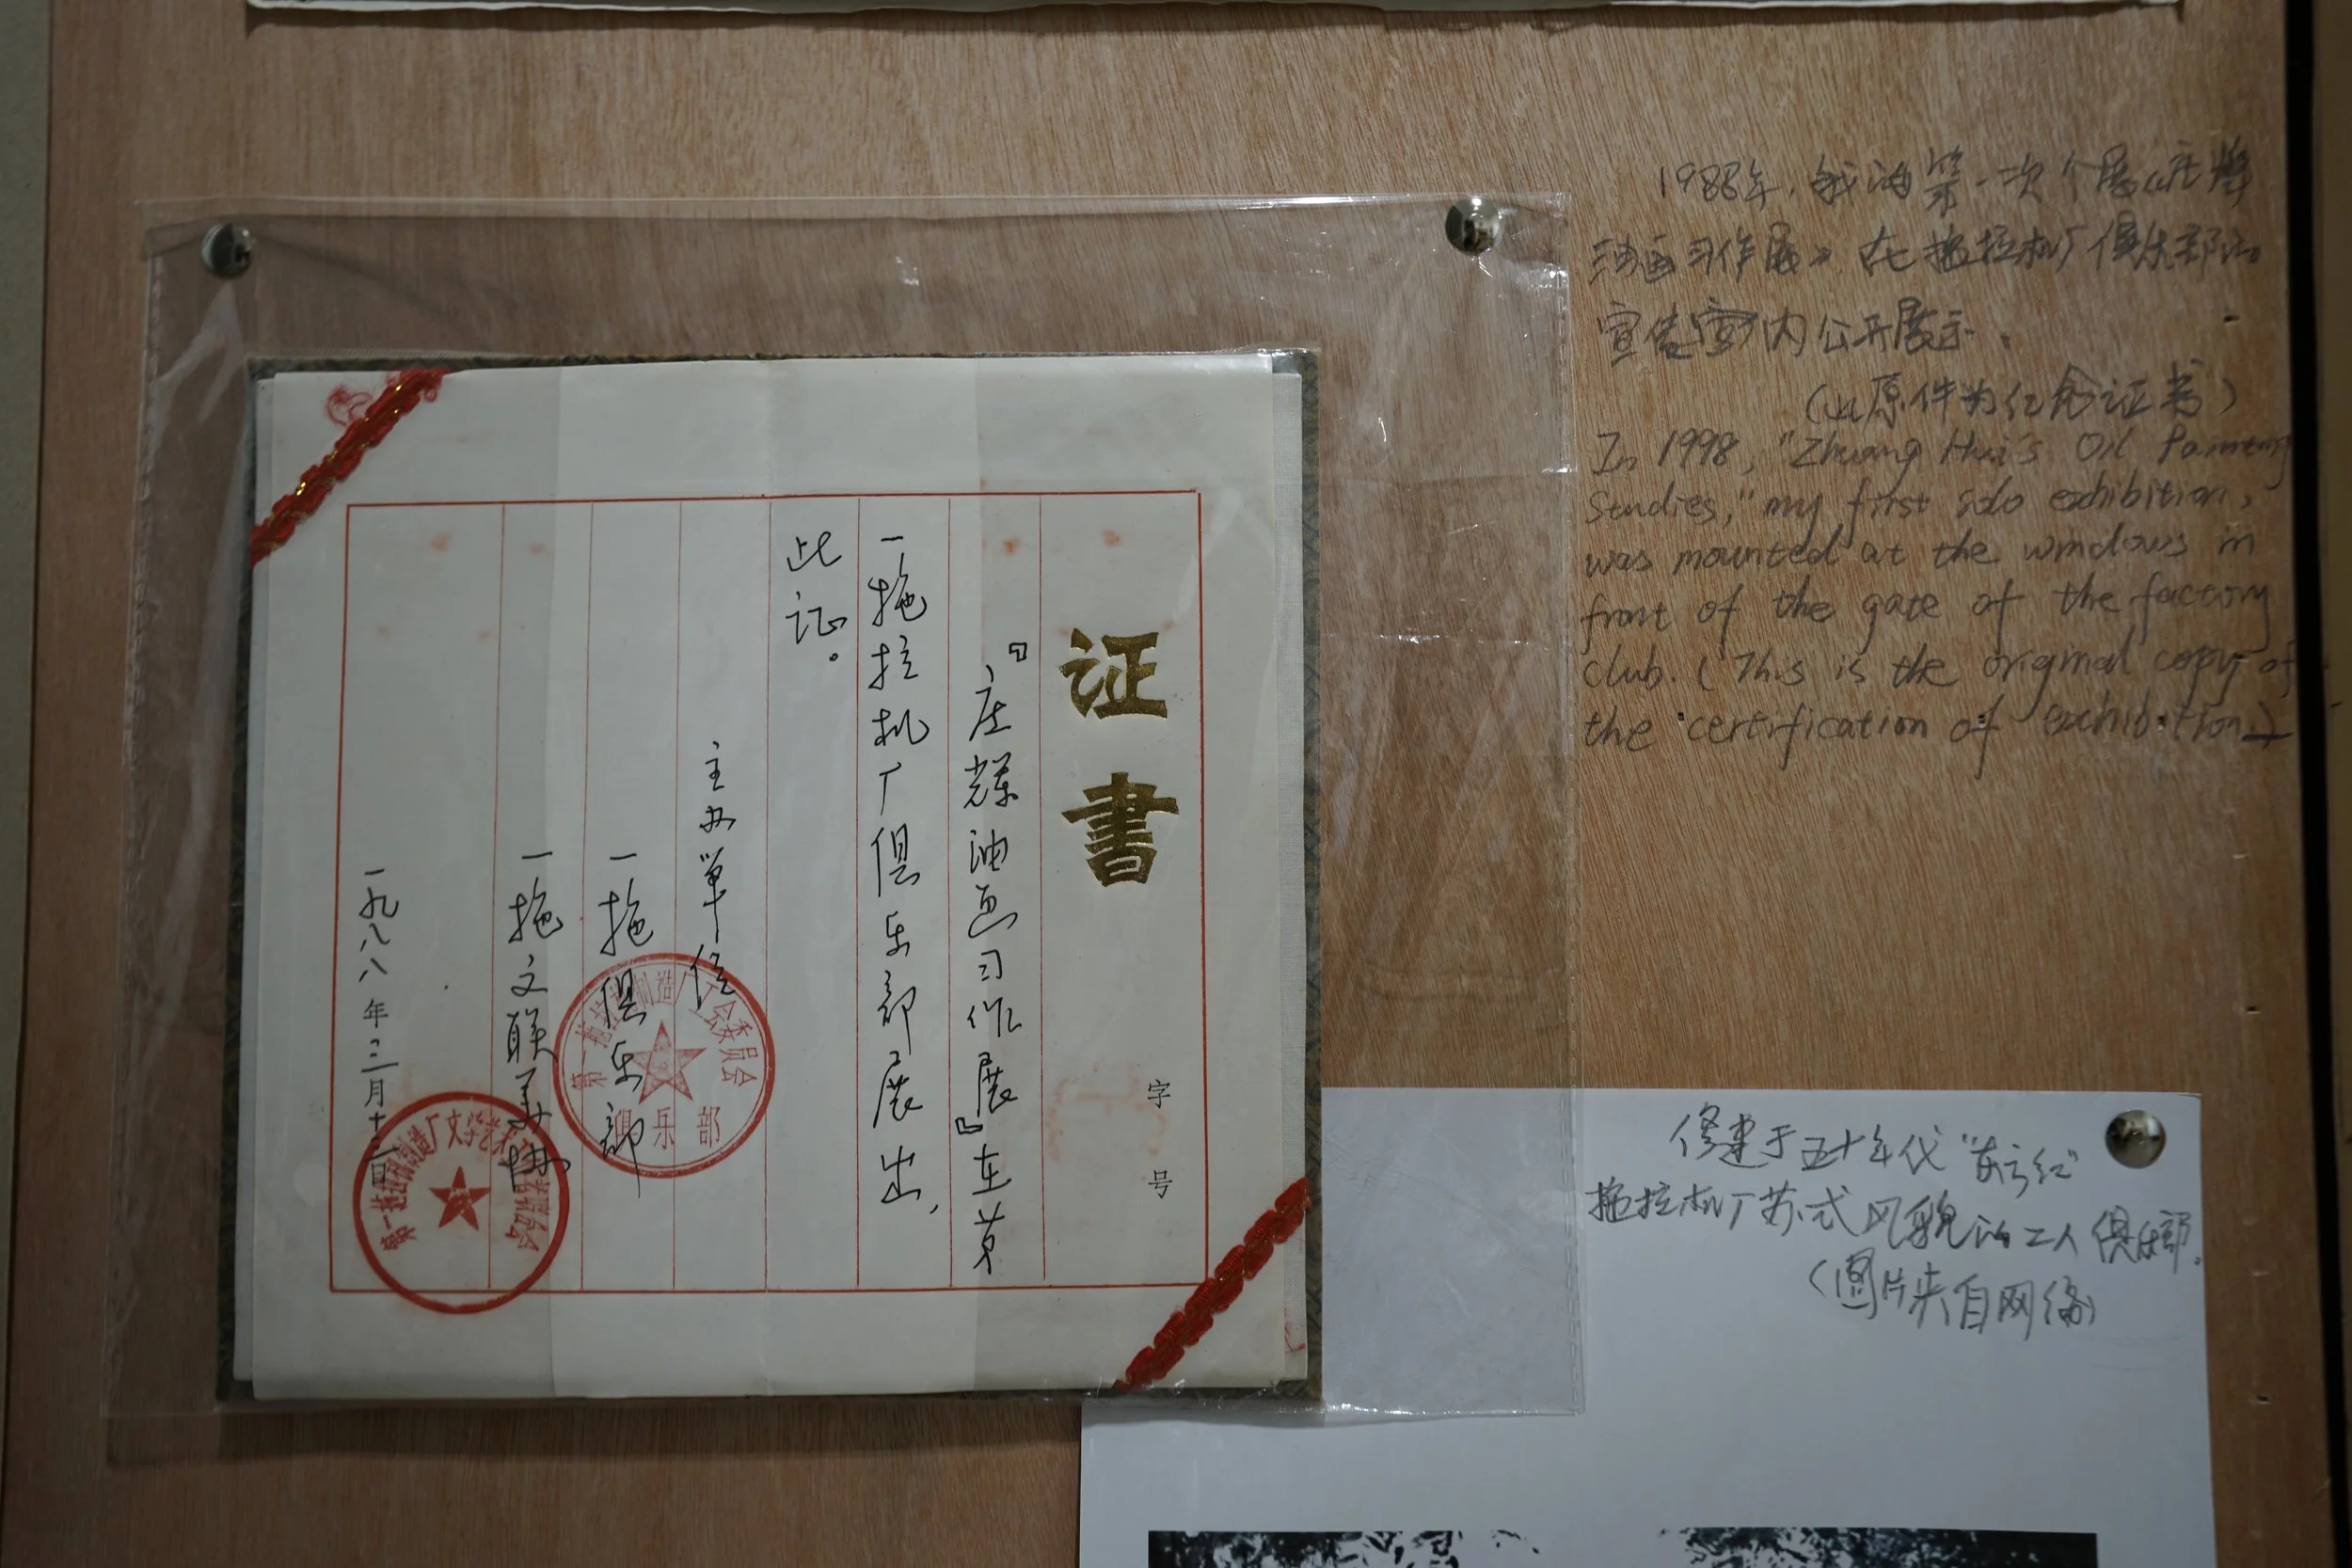 证書
字 号
『庄辉油画习作展』在第
一拖拉机厂俱乐部展出，
此证。
主办单位
一拖俱乐部
一拖文联美协
一九八八年三月十二日
俱乐部
1988年，我的第一次个展《庄辉
油画习作展》在拖拉机厂俱乐部的
宣传窗内公开展示。
原件为纪念证书）
In 1998, "Zhuang Hui's Oil Painting
Studies," my first solo exhibition,
was mounted at the windows in
front of the gate of the factory
club. (This is the original copy of
the certification of exhibition)
修建于五十年代"东方红"
拖拉机厂苏式风貌的工人俱乐部。
（图片来自网络）